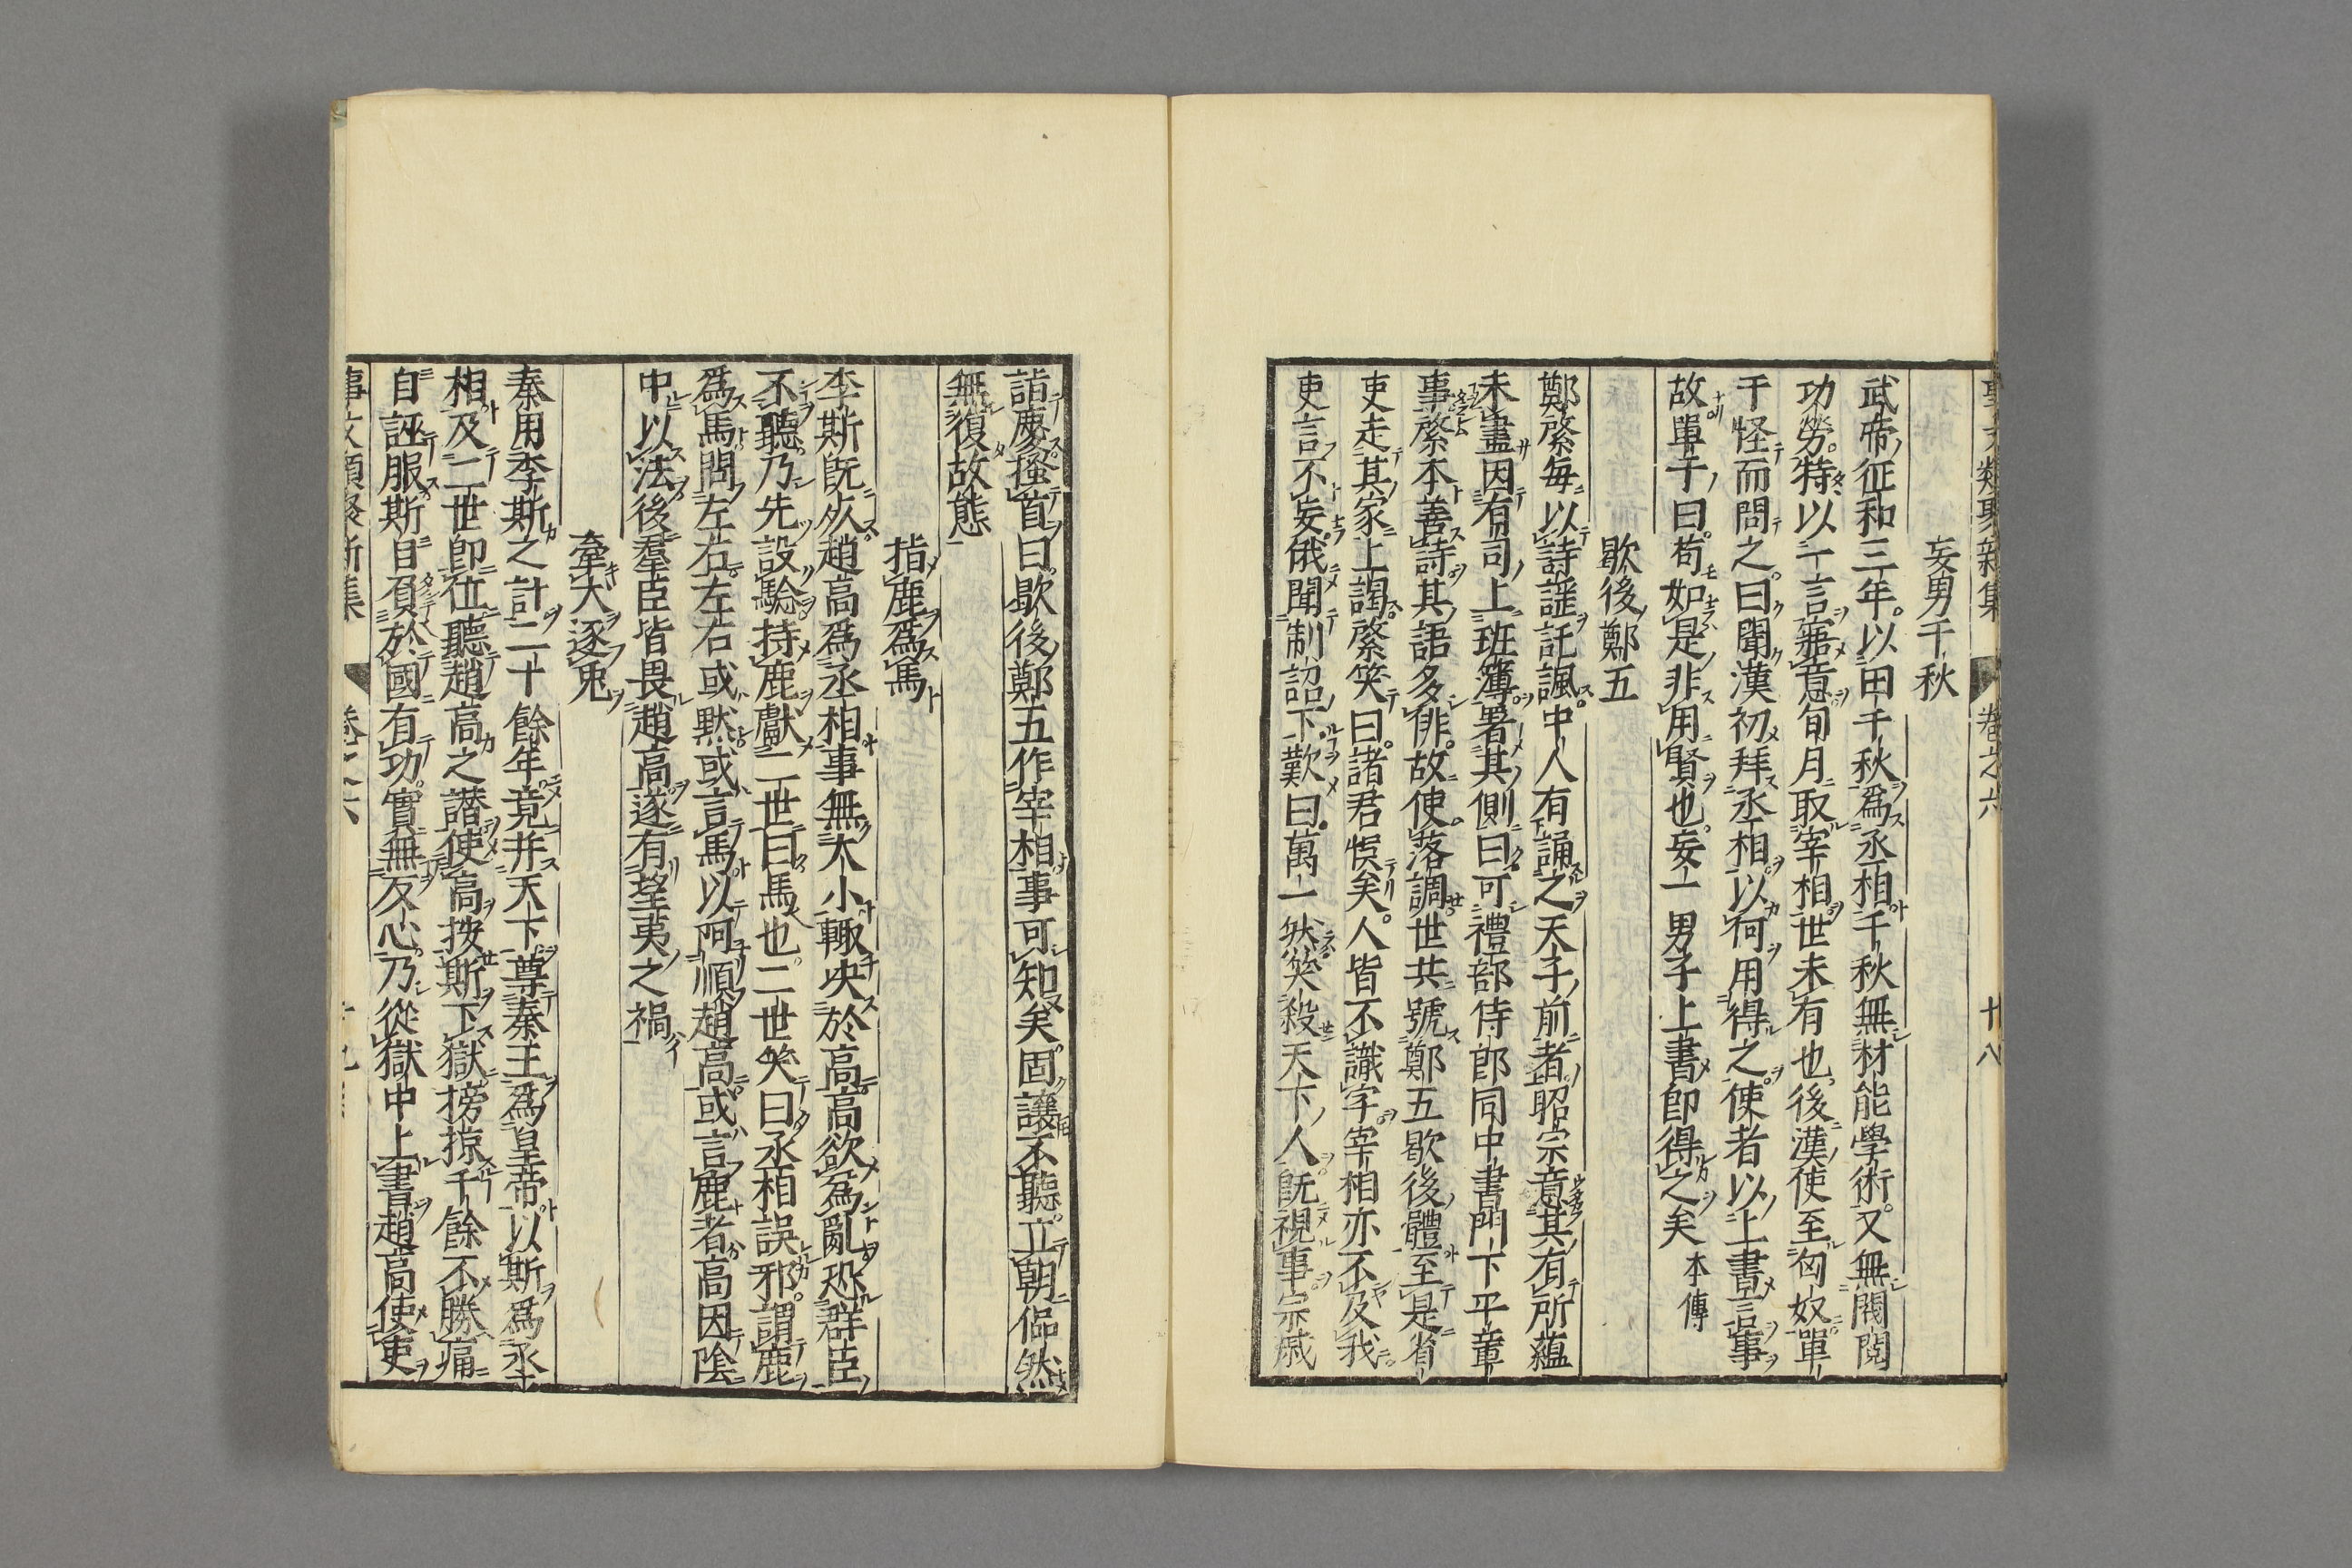 妄男千秋
武帝征和三年。以田千秋爲丞相千秋無材能學術。又無閥閱
功勞。特以一言寤意旬月取宰相世未有也。後漢使至匈奴單
于怪而問之。曰聞漢初拜丞相以何用得之。使者以上書言事
故單于曰。苟如是非用賢也。妄一男子上書即得之矣 本傳
歇後鄭五
鄭綮毎以詩謡託諷。中人有誦之天子前者。昭宗意其有所蘊
未盡因有司上班簿署其側曰可禮部侍郎同中書門下平章
事綮本善詩其語多俳。故使落調世共號鄭五歇後體至是省
吏走其家上謁綮笑曰。諸君悞矣。人皆不識字宰相亦不及我
吏言不妄。俄聞制詔下歎曰。萬一然笑殺天下人既視事。宗戚
詣慶搔首曰。歇後鄭五作宰相事可知矣。固讓不聽。立朝偘然
無復故態
指鹿爲馬
李斯既死趙高爲丞相事無大小輙决於高高欲爲亂恐群臣
不聽乃先設驗持鹿獻二世曰馬也。二世笑曰丞相誤邪。謂鹿
爲馬問左右左右或默或言馬以阿順趙高或言鹿者高因隂
中以法後羣臣皆畏趙高遂有望夷之禍
牽犬逐兎
秦用李斯之計二十餘年竟并天下尊秦王爲皇帝以斯爲丞
相及二世卽位聽趙高之譖使高按斯下獄搒掠千餘不勝痛
自誣服斯自負於國有功。實無反心。乃從獄中上書趙高使吏